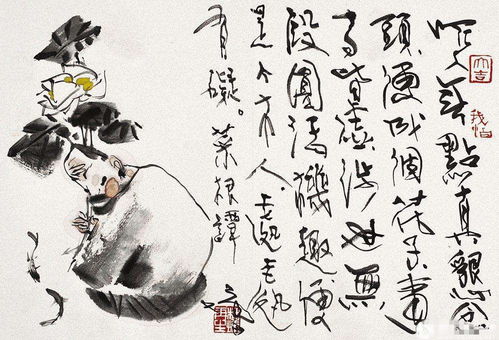 作人無點真懇念
頭便成個花子事
事皆虛涉世無
段圓活機趣便
是个木人处处
有礙。菜根譚
大吉